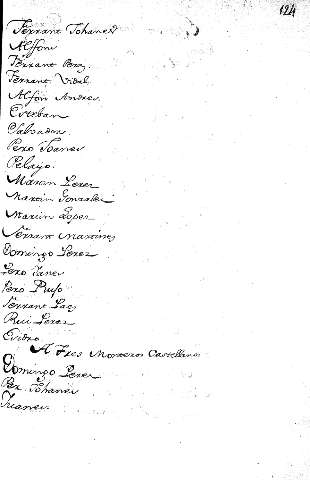 124
Ferrant Johanes
Alffons
Ferrant Perez.
Ferrant Vidal
Alfon Andres
Esteban
Salvador.
Pero Joanes
Pelayo.
Martin Perez
Martin Gonzalez
Martin Lopez
Ferrant Martines
Domingo Perez
Pero Ianes
Pero Ruso
Ferrant Laz
Rui Perez
Esidro
A Tres Monteros Castellanos
Domingo Perez
Per Johanes
Juanes.